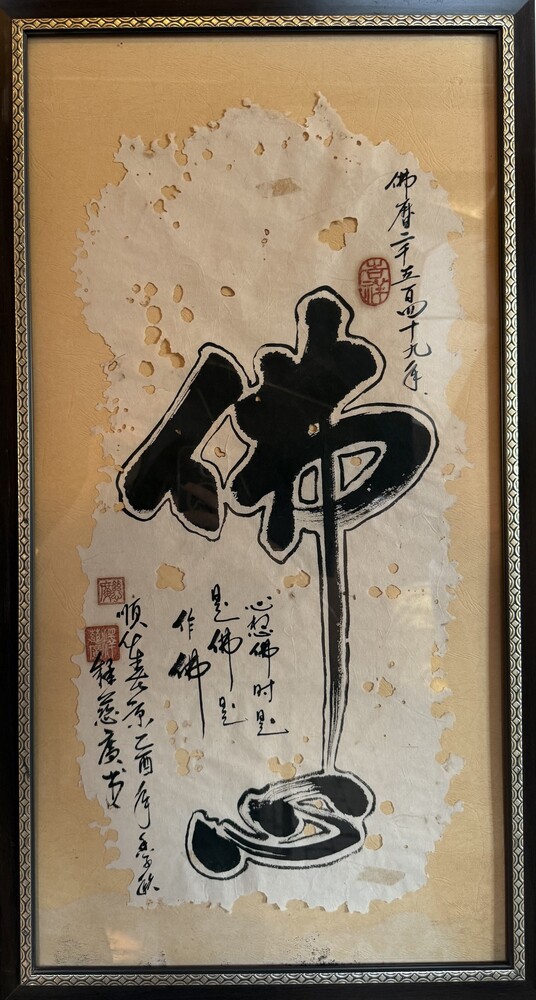 佛曆二千五百四十九年
吉祥
佛心
心想佛时是
是佛是
作佛
順化 京乙酉年
釋慈廣书